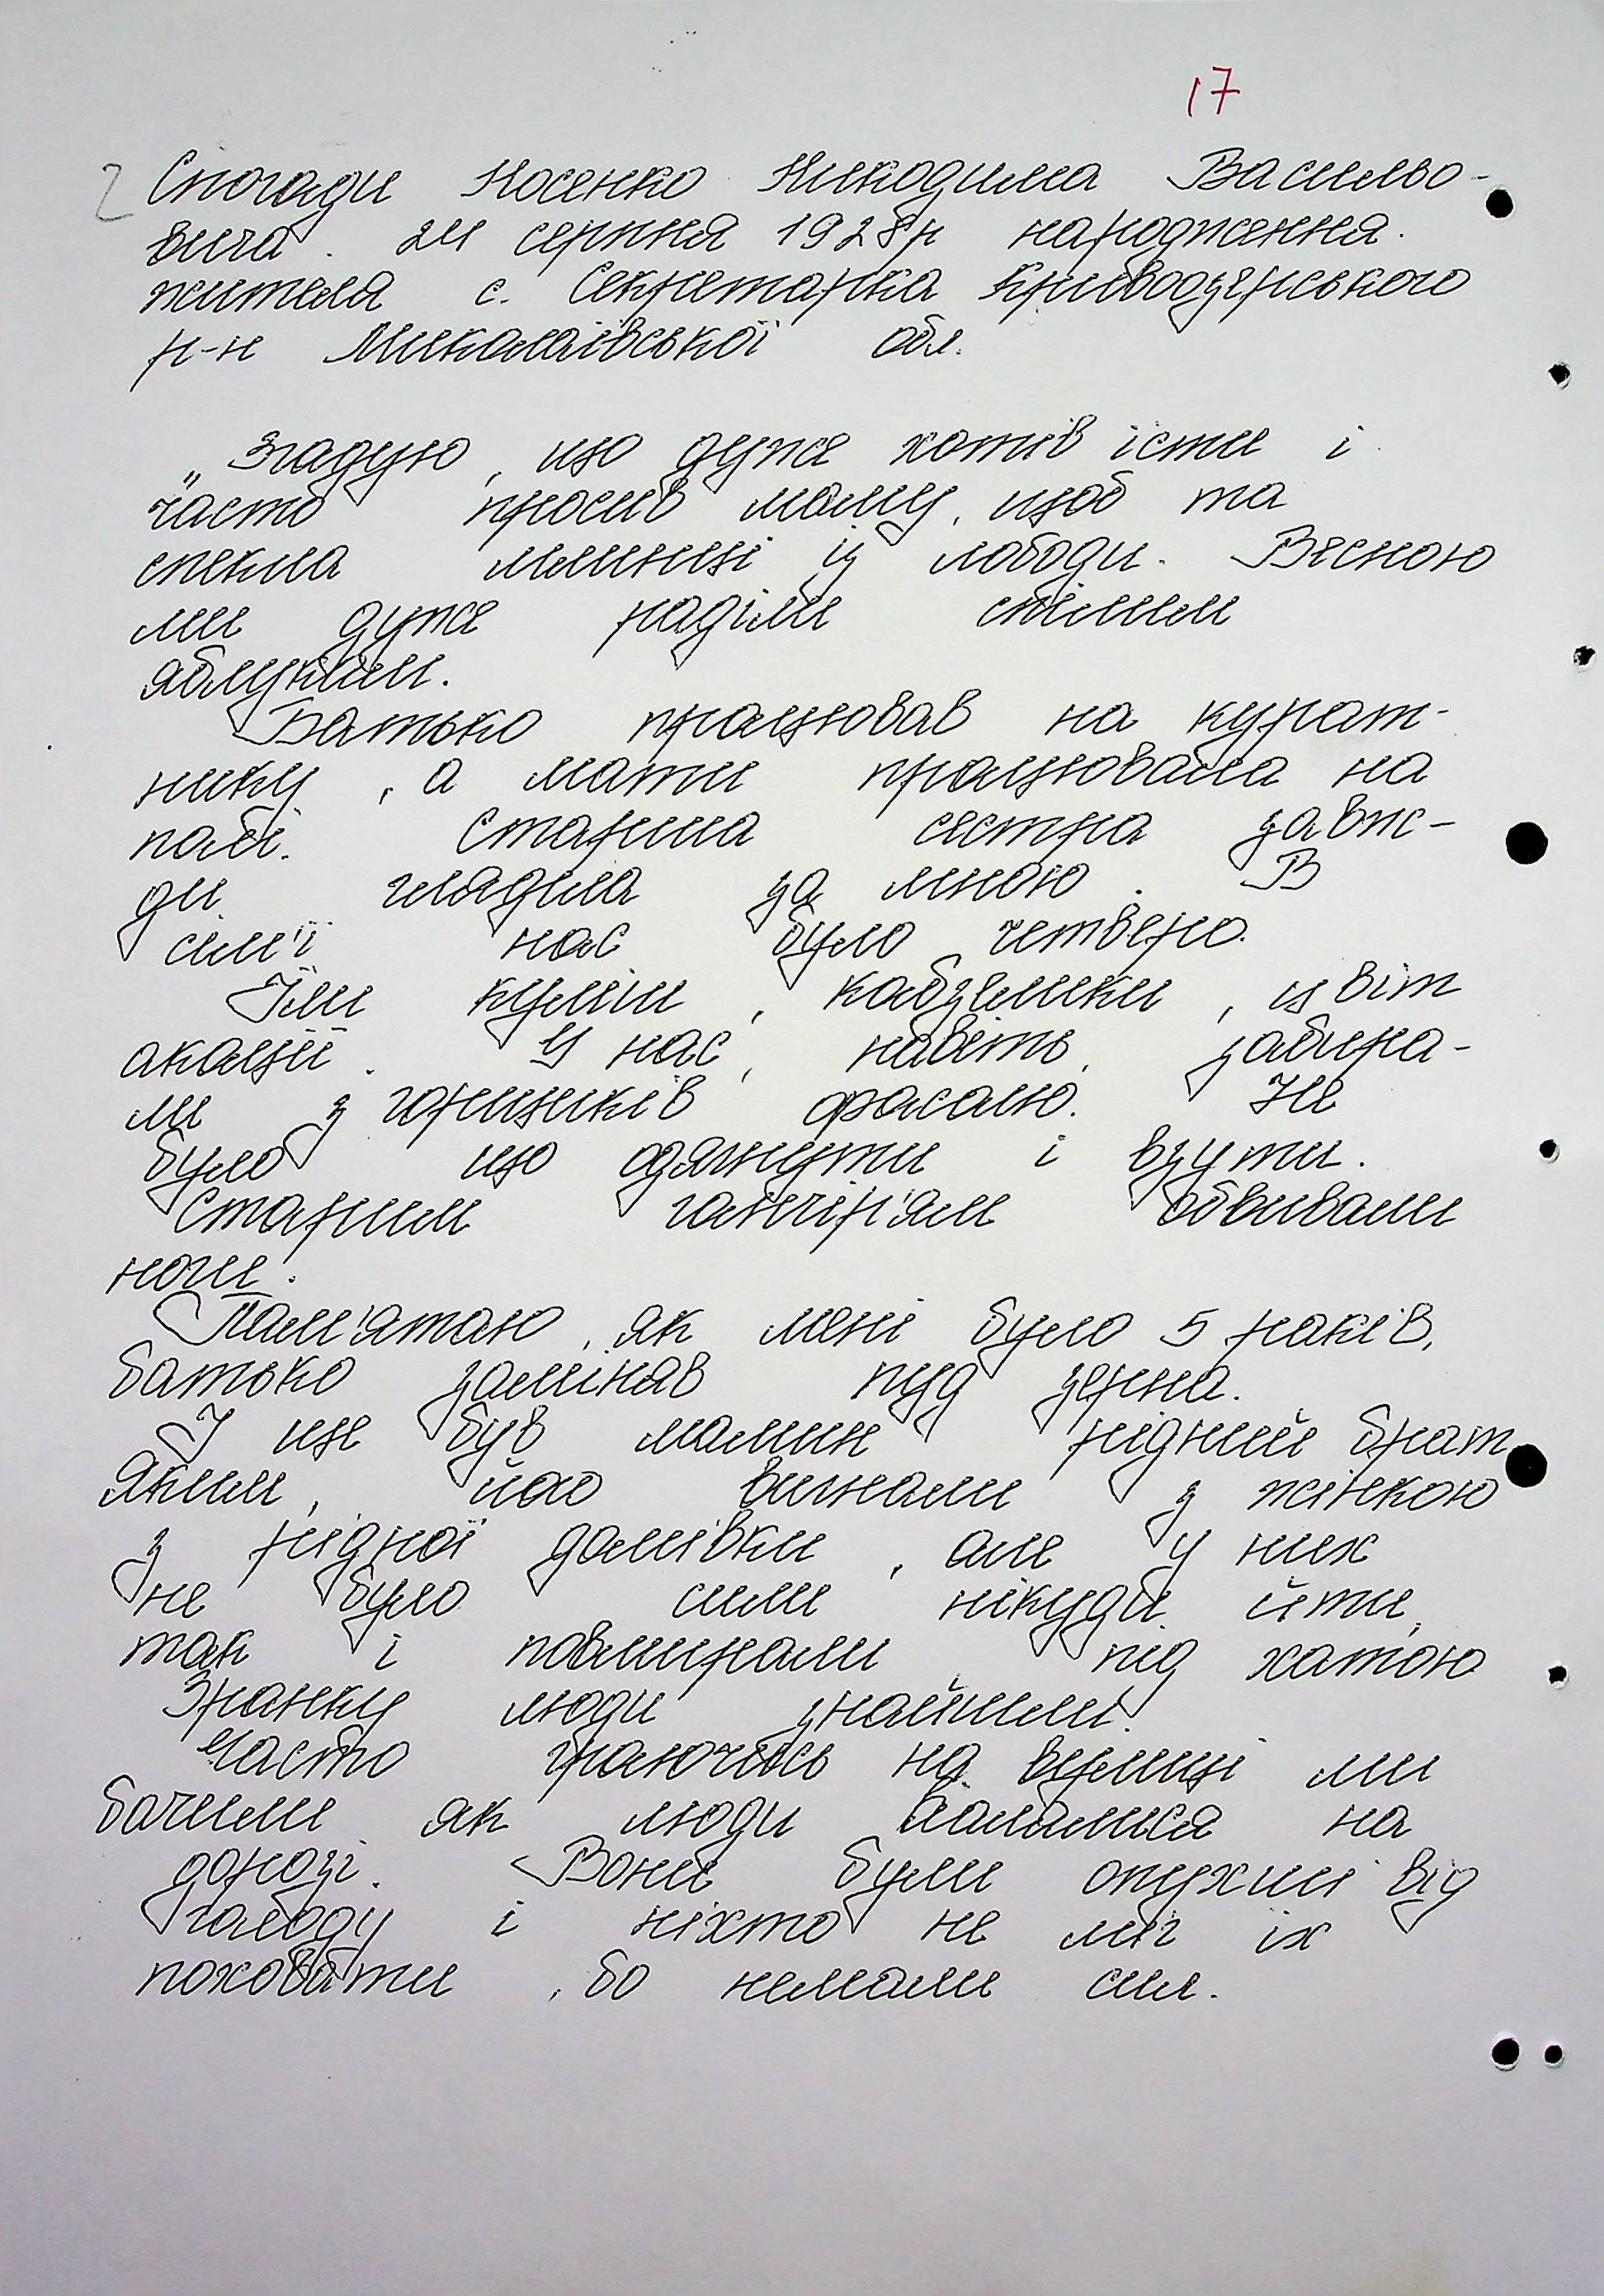 17
Спогади Носенко Никодима Васильо-
вича. 24 серпня 1928р народження.
жителя с. Секретарка Кривоозерського
р-н Миколаївської обл.
„Згадую, що дуже хотів їсти і
часто просив маму, щоб та
спекла млинці із лободи. Весною
ми дуже раділи спілим
яблукам.
Батько працював на курат-
нику, а мати працювала на
полі. Старша сестра завж-
ди гляділа за мною. В
сім'ї нас було четверо.
Їли куліш, кабзелики, цвіт
акації. У нас, навіть, забира-
ли з горщиків фасолю. Не
було що одягнути і взути.
Старим ганчір'ям обвивали
ноги.
Пам'ятаю, як мені було 5 років,
батько заміняв пуд зерна.
І ще був мамин рідний брат
Яким, його вигнали з жінкою
з рідної домівки, але у них
не було сили нікуди йти,
так і повмирали під хатою
Зранку люди знайшли.
Часто граючись на вулиці ми
бачили як люди валялися на
дорозі. Вони були опухші від
голоду і ніхто не міг їх
поховати, бо немали сил.